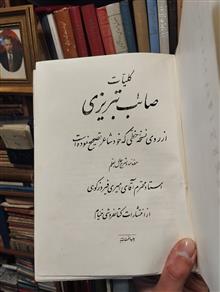 کلیات
صائب تبریزی
از روی نسخهٔ خطی که خود شاعر تصحیح نموده است
مقدمه و شرح حال بقلم
استاد محترم آقای امیری فیروزکوهی
از انتشارات کتابفروشی خیام